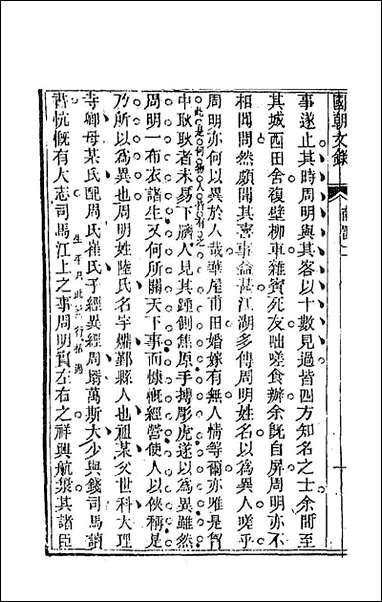 國朝文錄
事遂止其時周明與其客以十數見過皆四方知名之士余間至
其城西田舍復壁柳車雜賓死友咄嗟食辦余既自屏周明亦不
相聞問然頗聞其喜事益甚江湖多傳周明姓名以為異人嗟乎
周明亦何以異於人哉華屋甫田婚嫁有無人情等爾亦唯是胷
此是何物人皆有之
中耿耿者未易下臍人見其踵側焦原手搏彫虎遂以為異雖然
周明一布衣諸生又何所關天下事而慷慨經營使人以俠稱是
乃所以為異也周明姓陸氏名宇㸅鄞縣人也祖某父世科大理
寺卿母某氏配周氏崔氏子經異經周壻萬斯大少與錢司馬讀
生平只此行括過
書忼慨有大志司馬江上之事周明實左右之祥興航其諸臣